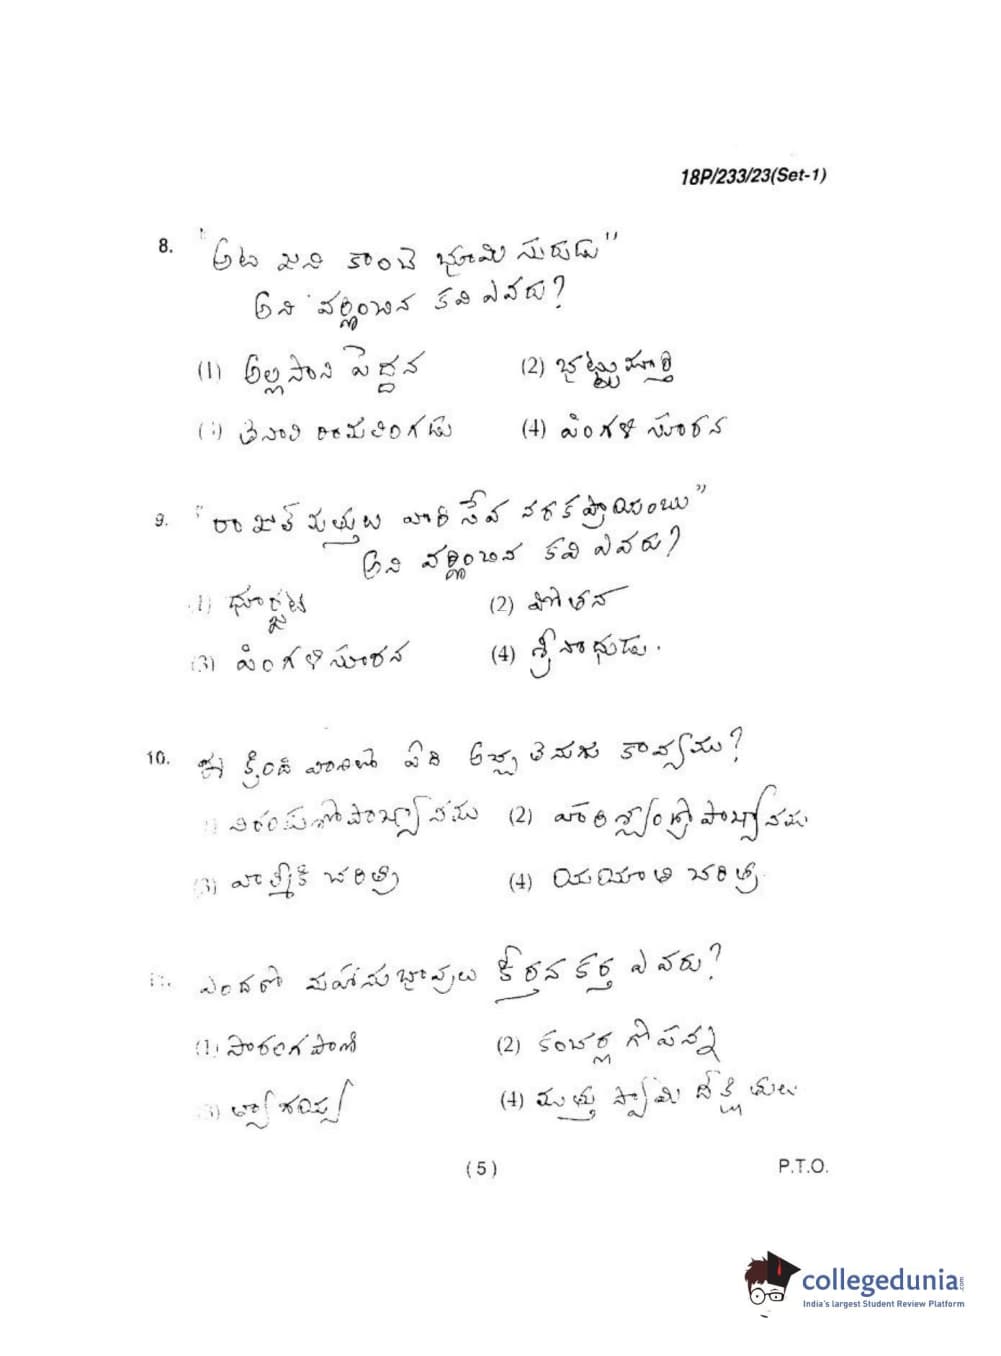 18P/233/23(Set-1)
8. "అట జని కాంచె భూమి సురుడు"
అని వర్ణించిన కవి ఎవరు?
(1) అల్లసాని పెద్దన (2) భట్టుమూర్తి
(3) తెనాలి రామలింగడు (4) పింగళి సూరన
9. "రాజుల్ మత్తులు వారి సేవ నరకప్రాయంబు"
అని వర్ణించిన కవి ఎవరు?
(1) ధూర్జటి (2) పోతన
(3) పింగళి సూరన (4) శ్రీనాధుడు.
10. ఈ క్రింది వానిలో ఏది అచ్చ తెనుగు కావ్యము?
(1) నిరంకుశోపాఖ్యానము (2) హరిశ్చంద్రోపాఖ్యానము
(3) వాల్మీకి చరిత్ర (4) యయాతి చరిత్ర.
11. ఎందరో మహానుభావులు కీర్తన కర్త ఎవరు?
(1) సారంగపాణి (2) కంచర్ల గోపన్న
(3) త్యాగయ్య (4) ముత్తు స్వామి దీక్షితులు
(5)
P.T.O.
collegedunia.com
India's largest Student Review Platform